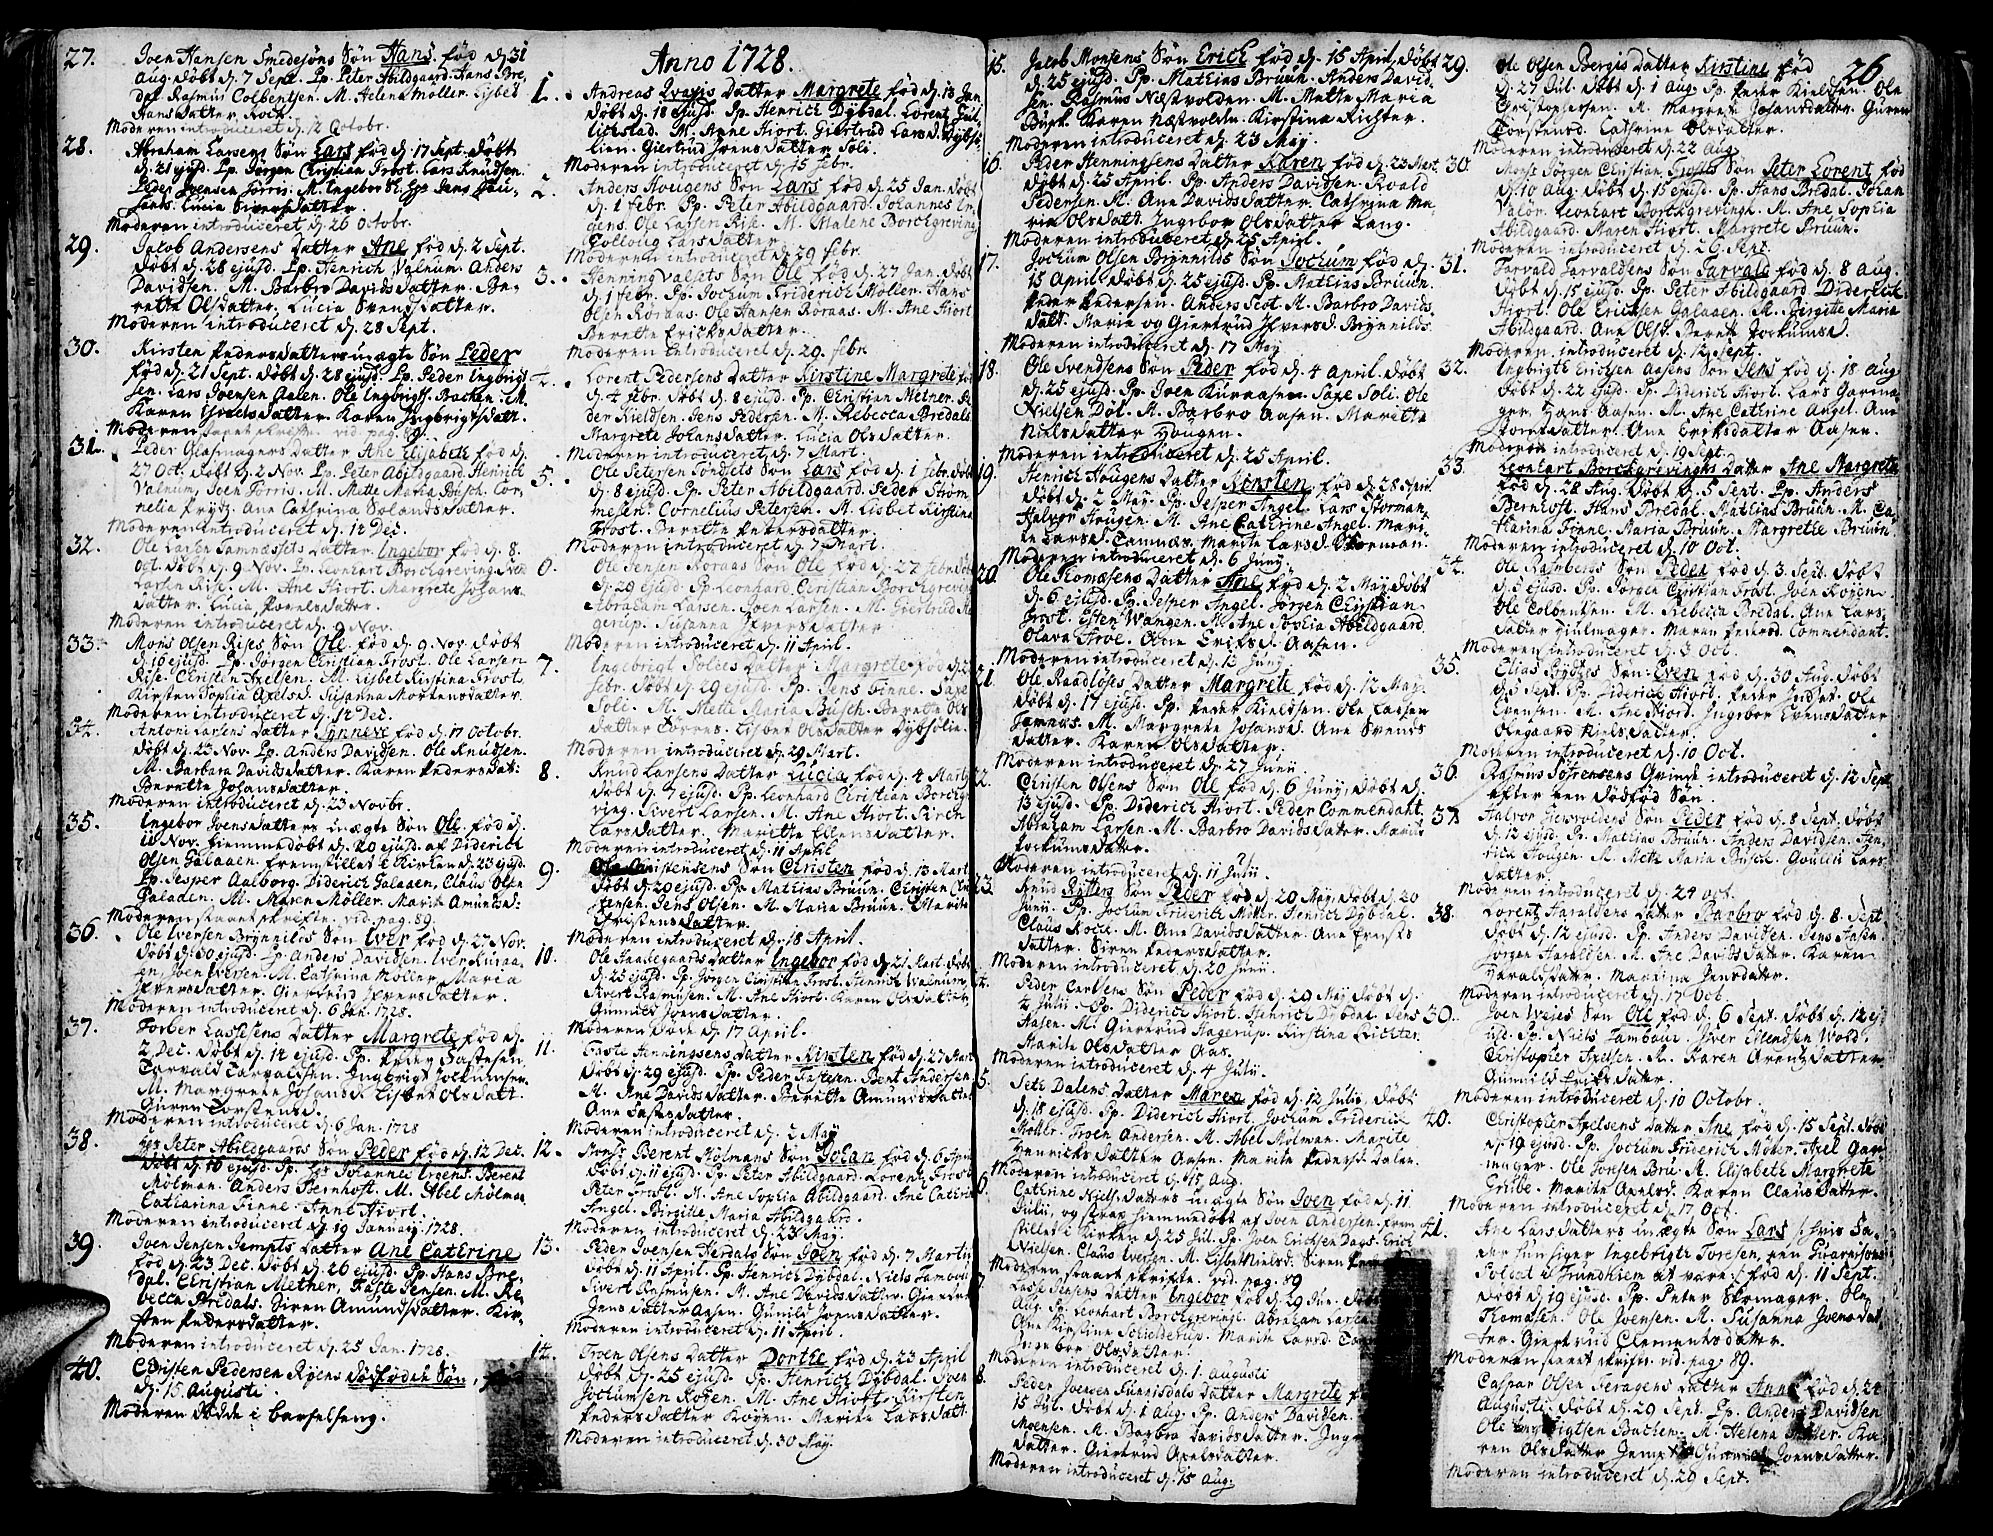 27. Iven Hansen Smedesøns Søn Hans fød d. 31
Aug. døbt d. 7 Sept. Pp. Peter Abildgaard. Hans Bre-
dal. Rasmus Colbentsen. M. Helena Møller. Lisbet
Hans Datter. Rock.
Moderen introduceret d. 12 Octobr.
28. Abraham Larsens Søn Lars fød d. 17 Sept. døbt
d. 21 ejusd. Pp. Jørgen Christian Frost. Lars Knudsen.
Peder Joensen
Lucia Sivers Datter.
Moderen introduceret d. 26 Octobr.
29. Jacob Andersens Datter Ane fød d. 2 Sept.
døbt d. 28 ejusd. Pp. Henrich Valnum. Anders
Davidsen. M. Barbro Davids Datter. Be-
rette Ols Datter. Lucia Svends Datter.
Moderen introduceret d. 28 Sept.
30. Kirsten Peders Datters uægte Søn Peder
fød d. 21 Sept. døbt d. 28 ejusd. Pp. Peder Ingbrigt-
sen. Lars Joensen Aalen. Ole Ingbrigts. Bachen. M.
Karen Datter. Karen Ingbrigts Datt.
Moderen vid. pag. 89.
31. Peder Glasmagers Datter Ane Elisabeth fød d.
27 Oct. døbt d. 2 Nov. Pp. Peter Abildgaard. Henrich
Valnum. Iven Torris. M. Mette Maria Busch. Cor-
nelia Ane Cathrina Datter.
Moderen introduceret d. 12 Dec.
32. Ole Larsen Tamnæssets Datter Ingebor fød d. 8.
Oct. døbt d. 9 Nov. Pp. Leonhart Borchgreving.
Larsen Rise. M. Ane Hiort. Margrete Johans
Datter. Lucia Datter.
Moderen introduceret d. 9 Nov.
33. Mons Olsen Rises Søn Ole fød d. 9 Nov. døbt
d. 16 ejusd. Pp. Jørgen Christian Frost. Ole Larsen
Rise. Christen Axelsen. M. Lisbet Kirstina Frost.
Kirsten Sophia Axelsd. Susanna Mortens Datter.
Moderen introduceret d. 12 Dec.
34. Antoni Larsens Datter Synneve fød d. 17 Octobr.
døbt d. 23 Nov. Pp. Anders Davidsen. Ole Knudsen.
M. Barbara Davids Datter. Karen Peders Datt.
Berette Johans Datter.
Moderen introduceret d. 23 Novbr.
35. Ingebor Joens Datters uægte Søn Ole fød d.
10 Nov. hiemmedøbt d. 20 ejusd. af Diderich
Olsen Galaaen, fremstillet i Kirken d. 23 ejusd.
Pp. Jesper Aalborg. Diderich Galaaen. Claus Olsen
M. Maren Møller. Marit Amunds D.
Moderen staaet skrifte. vid. pag. 89.
36. Ole Iversen Brynnilds Søn Iver fød d. 27 Nov.
døbt d. 30 ejusd. Pp. Anders Davidsen. Iver Kuraa-
en. Joen Iversen. M. Catrina Møller. Maria
Ifvers Datter. Giertrud Ifvers Datter.
Moderen introduceret d. 6 Jan. 1728.
37. Torber Lassesens Datter Margrete fød d.
2 Dec. døbt d. 12 ejusd. Pp. Peder Fastesen.
Tarvald Tarvaldsen. Ingbrigt Jochumsen.
M. Margrete Johansd. Lisbet Ols Datt.
Guren Torstensd.
Moderen introduceret d. 6 Jan. 1728
38. Peter Abildgaards Søn Peder fød d. 12 Dec.
døbt d. 16 ejusd. Pp. Johannes Irgens. Berent
Mølman. Anders Bernhoft. M. Abel Mølman
Catharina Finne. Anne Hiort.
Moderen introduceret d. 19 January. 1728.
39 Iven Jensen Tempts Datter Ane Catrine
fød d. 23 Dec. døbt d. 26 ejusd. Pp. Hans Bre-
dal. Christian Metner. Faste Jensen. M. Re-
becca Bredals. Siren Amunds Datter. Kir-
sten Peders Datter.
Moderen introduceret d. 25 Jan. 1728.
40. Christen Pedersen Røyens dødfødde Søn.
d. 15 Augusti
Moderen døde i barselseng.
Anno 1728.
1. Andreas Datter Margrete fød d. 13 Jan
døbt d. 18 ejusd. Pp. Henrich Dybdal. Lorent
M. Anne Hiort. Giertrud Lars D. Dybsø-
lien. Giertrud Ivens Datter Soli.
Moderen introduceret d. 15 febr.
2. Anders Hougens Søn Lars fød d. 25 Jan. døbt
d. 1 febr. Pp. Peter Abildgaard. Johannes Ir-
gens. Ole Larsen Rise. M. Malene Borchgreving
Lars Datter.
Moderen introduceret d. 29 febr.
3. Henning Valsets Søn Ole fød d. 27 Jan. døbt
d. 1 febr. Pp. Jochum Friderich Møller. Hans
Olsen Roraas. Ole Hansen Roraas. M. Ane Hiort
Berette Ericks Datter.
Moderen introduceret d. 29. febr.
4. Lorent Pedersens Datter Kirstine Margrete fød
d. 4 febr. døbt d. 8 ejusd. Pp. Christian Metner. Pe-
der Kieldsen. Jens Pedersen. M. Rebecca Bredals
Margrete Johans Datter. Lucia Ols Datter.
Moderen introduceret d. 7 Mart.
5. Ole Petersen Tønsets Søn Lars fød d. 1 febr. døbt
d. 8 ejusd. Pp. Peter Abildgaard. Peder Strøm-
mesen. Cornelius Petersen. M. Lisbet Kirstina
Frost. Berette Peders Datter.
Moderen introduceret d. 7 Mart.
6. Ole Jensen Roraas Søn Ole fød d. 22 febr. døbt
d. 29 ejusd. Pp. Leonhard Christian Borchgreving
Abraham Larsen. Joen Larsen. M. Giertrud Ha-
gerup. Susanna Ifvers Datter
Moderen introduceret d. 11 April.
7. Ingebrigt Solies Datter Margrete fød d.
febr. døbt d. 29 ejusd. Pp. Jens Finne. Saxe
Soli. M. Mette Maria Busch. Berette Ols
Datter Torres. Lisbet Ols Datter Dybsølin.
Moderen introduceret d. 29 Mart.
8. Knud Larsens Datter Lucia fød d. 4 Marty
døbt d. 7 ejusd. Pp. Leonhard Christian Borchgre-
ving. Sivert Larsen. M. Ane Hiort. Siren
Lars Datter. Marette Ellens Datter.
Moderen introduceret d. 11 April
9. Christensens Søn Christen fød d. 13 Mart.
døbt d. 20 ejusd. Pp. Mathias Bruun. Christen
Jens Olsen. M. Maria Bruun. Marit
Datter.
Moderen introduceret d. 18 April.
10. Ole Datter Ingebor fød d. 21 Mart. døbt
d. 25 ejusd. Pp. Jørgen Christian Frost. Henrich Valnum.
Sivert Rasmusen. M. Ane Hiort. Karen Ols Datter
Gunnild Joens Datter.
Moderen døde d. 17 April.
11. Faste Henningsens Datter Kirsten fød d. 27 Mart
døbt d. 29 ejusd. Pp. Peder Fastesen. Bent Andersen.
M. Ane Davids Datter. Berette Amunds Datter
Ane Fastes Datter.
Moderen introduceret d. 2 May
12. Mons. Berent Mølmans Søn Johan fød d. 6 April
døbt d. 11 ejusd. Pp. Peter Abildgaard. Lorentz Frost
Peter Frost. M. Ane Sophia Abildgaard. Ane Catrin
Angel. Birgitte Maria Abildgaard.
Moderen introduceret d. 23 May.
13. Peder Ivensen Herdals Søn Joen fød d. 7 Martii
døbt d. 11 April. Pp. Henrich Dybdal. Niels Tambur
Sivert Rasmusen. M. Ane Davids Datter. Giertrud
Jens Datter Aasen. Gunild Joens Datter.
Moderen introduceret d. 11 April.
14. Troen Olsens Datter Dorthe fød d. 23 April
døbt d. 25 ejusd. Pp. Henrich Dybdal. Iven
Jochumsen Røyen. M. Ane Hiort. Kirsten
Peders Datter Røyen. Marite Lars Datt.
Moderen introduceret d. 30 May.
15. Jacob Monsens Søn Erich fød d. 15 April, døbt
d. 25 ejusd. Pp. Mathias Bruun. Anders David-
sen. Rasmus Næstvolden. M. Mette Maria
Busk. Karen Næstvolden. Kirstina Richter.
Moderen introduceret d. 23 May.
16. Peder Henningsens Datter Karen fød d. 23 Mart.
døbt d. 25 April. Pp. Anders Davidsen. Roald
Pedersen. M. Ane Davids Datter. Cathrina Ma-
ria Ols Datt. Ingebor Ols Datter Lang.
Moderen introduceret d. 25 April.
17. Jochum Olsen Brynnilds Søn Jochum fød d.
15 April, døbt d. 25 ejusd. Pp. Mathias Bruun.
Peder Pedersen. Anders Scot. M. Barbro Davids
Datt. Maria og Giertrud Ifvers D. Brynnilds.
Moderen introduceret d. 17 May
18. Ole Svendsens Søn Peder fød d. 4 April. døbt
d. 25 ejusd. Pp. Joen Kuraasen. Saxe Soli. Ole
Nielsen Døl. M. Barbro Aasen. Marette
Niels Datter Hougen.
Moderen introduceret d. 25 April.
19. Henrich Hougens Datter Kirsten fød d. 28 April.
døbt d. 2 May. Pp. Jesper Angel. Lars Storman.
Halvor Hougen. M. Ane Catrine Angel. Mari-
te Larsd. Tamnæs. Marite Larsd. Storman.
Moderen introduceret d. 6 Juny.
20. Ole Thomæsens Datter Ane fød d. 2 May døbt
d. 6 ejusd. Pp. Jesper Angel. Jørgen Christian
Frost. Esten Wangen. M. Ane Sophia Abildgaard
Olava Ane Eriks D. Aasen.
Moderen introduceret d. 13 Juny.
21. Ole Raadløses Datter Margrete fød d. 12 May.
døbt d. 17 ejusd. Pp. Peder Kieldsen. Ole Lassen
Tamnæs. M. Margrete Johansd. Ane Svends
Datter. Karen Ols Datter.
Moderen introduceret d. 27 Junii
22. Christen Olsens Søn Ole fød d. 6 Juny, døbt d.
13 ejusd. Pp. Diderich Hiort. Peder Commendant.
Abraham Larsen. M. Barbro Davids Datter. Maria
Jockums Datter.
Moderen introduceret d. 11 Julii
23. Knud Ritters Søn Peder fød d. 20 May, døbt d. 20
Junii. Pp. Jochum Friderich Møller. Henrich Dybdal.
Claus Rock. M. Ane Davids Datter. Ane Ernsts
Datter. Siren Peders Datter.
Moderen introduceret d. 20 Junii.
24. Peder Carlsens Søn Peder fød d. 29 May døbt d.
4 Julii. Pp. Diderich Hiort. Henrich Dybdal. Jens
Aasen. M. Giertrud Hagerup. Kirstina Richter.
Marite Ols Datter Aas.
Moderen introduceret d. 4 Julii.
5. Seth Dalens Datter Maren fød d. 12 Julii døbt
d. 18 ejusd. Pp. Diderich Hiort. Jochum Friderich
Møller. Troen Andersen. M. Abel Mølman. Marite
Henricks Datter Aasen. Marite Peders D. Dalen.
Moderen introduceret d. 15 Aug.
6 Catrine Niels Datters uægte Søn Joen fød d. 11
Julii, og strax hiemmedøbt af Iven Andersen frem-
stillet i Kirken d. 25 Jul. Pp. Iven Erichsen Erich
Nielsen. Claus Iversen. M. Lisbet Nielsd. Siren
Moderen staaet skrifte. vid. pag. 89
7 Lasse Jensens Datter Ingebor fød d. 29 Jun. døbt
Aug. Pp. Leonhart Borchgreving. Abraham Larsen
Ane Kirstine Schielderup. Marite Larsd.
Ingebor Ols Datter.
Moderen introduceret d. 1. augusti
8. Peder Joensen Funnisdals Datter Margrete
15 Jul. døbt d. 1 Aug. Pp. Anders Davidsen.
Moensen. M. Barbro Davids Datter.
Datter. Giertrud Axels Datter.
Moderen introduceret d. 15 Aug.
26
29. Ole Olsen Bergis Datter Kirstine fød
d. 27 Jul. døbt d. 1 Aug. Pp. Peder Kieldsen. Ole
Christophersen. M. Margrete Johans Datter. Guren
Torstensd. Cathrine Ols Datter.
Moderen introduceret d. 22 aug.
30. Mons. Jørgen Christian Frostes Søn Peter Lorent fød
d. 10 Aug. døbt d. 15 ejusd. Pp. Hans Bredal. Johan
Valør. Leonhart Borchgrevingk. M. Ane Sophia
Abildgaard. Maren Hiort. Margrete Bruun.
Moderen introduceret d. 26 Sept.
31. Tarvald Tarvaldsens Søn Tarvald fød d. 8 Aug.
døbt d. 15 ejusd. Pp. Peter Abildgaard. Diderich
Hiort. Ole Ericksen Galaaen. M. Birgitte Maria
Abildgaard. Ane Olsd. Berete Jockumsd.
Moderen introduceret d. 12 Sept.
32. Ingbrigte Erichsen Aasens Søn Jens fød d. 18 Aug
døbt d. 22 ejusd. Pp. Diderich Hiort. Lars Garma-
ger. Hans Aasen. M. Ane Cathrine Angel. Ane
Datter. Ane Eriks Datter Aasen.
Moderen introduceret d. 19 Sept.
33. Leonhart Borchgrevinghs Datter Ane Margrete
fød d. 28 Aug. døbt d. 5 Sept. Pp. Anders
Bernhoft. Hans Bredal. Mathias Bruun. M. Ca-
tharina Finne. Maria Bruun. Margrete Bruun.
Moderen introduceret d. 10 Oct.
34. Ole Rambergs Søn Peder fød d. 3. Sept. døbt
d. 5 ejusd. Pp. Jørgen Christian Frost. Joen Røyen.
Ole Colbentsen. M. Rebecca Bredal. Ane Lars
Datter Hiulmager. Maren Pedersd. Commendant.
Moderen introduceret d. 3 Oct.
35. Elias Søn Even fød d. 30 Aug. døbt
d. 5 Sept. Pp. Diderich Hiort. Peder Indset. Ole
Evensen. M. Ane Hiort. Ingebor Evens Datter
Olegaard Niels Datter.
Moderen introduceret d. 10 Oct.
36. Rasmus Sørensens Qvinde introduceret d. 12 Sept
efter een dødfød Søn.
37. Halvor Søn Peder fød d. 8 Sept. døbt
d. 12 ejusd. Pp. Mathias Bruun. Anders Davidsen. Hen-
rich Hougen. M. Mette Maria Busch. Lars
Datter.
Moderen introduceret d. 24 oct.
38. Lorentz Haraldens Datter Barbro fød d. 8. Sept
døbt d. 12 ejusd. Pp. Anders Davidsen. Jens Aasen.
Jørgen Haraldsen. M. Ane Davids Datter. Karen
Haralds Datter. Marrina Jens Datter.
Moderen introduceret d. 17 Oct.
30. Joen Weies Søn Ole fød d. 6 Sept. døbt d. 12 ej
usd. Pp. Niels Tambaur. Iver Ellendsen Wold.
Christopher Axelsen. M. Karen Arents Datter.
Gunnild Eriks Datter.
Moderen introduceret d. 10 Octobr.
40. Christopher Axelsens Datter Ane fød d. 15 Sept. døbt
d. 19 ejusd. Pp. Jochum Friderich Møller. Axel Gar-
mager. Ole Jonsen Bru. M. Elisabeth Margrete
Grube. Marite Axelsd. Karen Claus Datter.
Moderen introduceret d. 17 Oct.
41. Ane Lars Datters uægte Søn Lars /: hvis Fa-
der hun siger Ingebrigte Toresen, een Gvarnisons
Soldat i Trundhiem at være :/ fød d. 11 Sept.
døbt d. 19 ejusd. Pp. Peter Skomager. Ole
Thomæsen. Ole Joensen. M. Susanna Joens Dat-
ter. Giertrud Clements Datter.
Moderen staaet skrifte. vid. pag. 89.
Caspar Olsen Feragens Datter Anne fød d. 24
Augusti døbt d. 29 Sept. Pp. Anders Davidsen
Ole Ingbrigtsen Bachen. M. Helena Ka-
ren Ols Datter Joens Datter.
Moderen introduceret d. 29 Sept.